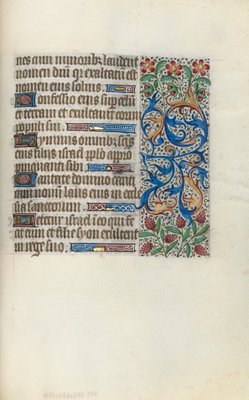 nes cum iunioribz laudent
nomen dni qr exaltatū est
nomen eius solius
Confessio eius super celū
et terram et exaltauit cornu
populi sui
Hymnus omnibz sctis
eius filiis israel pplo appro
pinquanti sibi
Cantate domino canti
cum nouum laus eius in eccle
sia sanctorum
Letetur israel i eo qui fe
cit eum et filie syon exultent
in rege suo